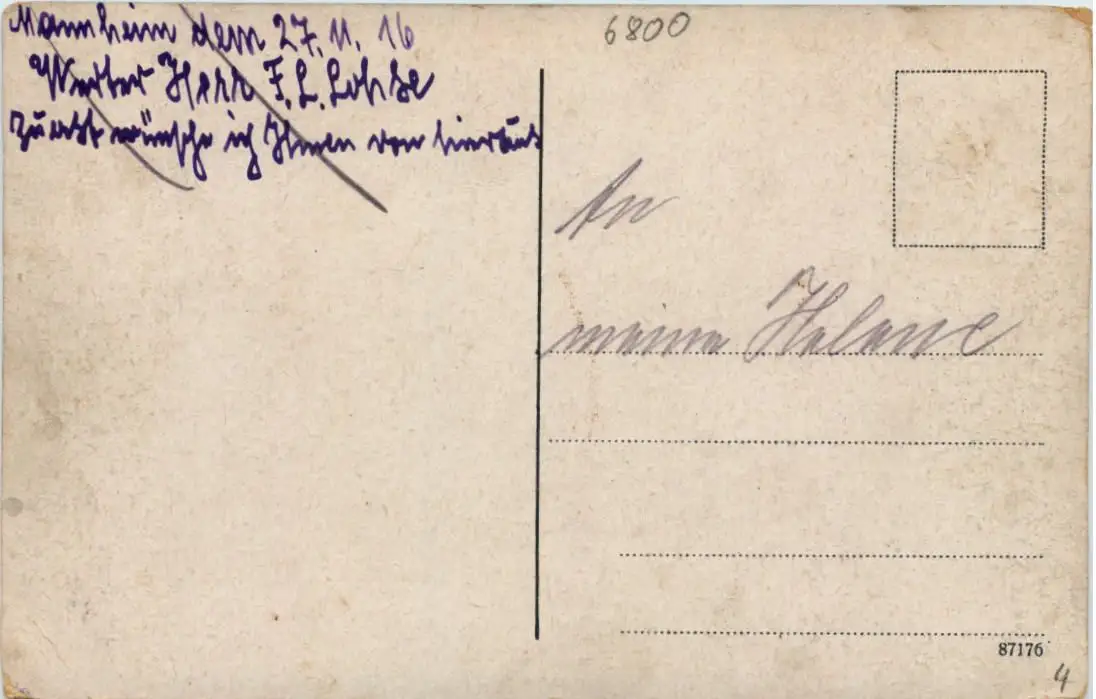 Mannheim dem 27. 11. 16
Werter Herr F. L. Lohse
zuerst wünsche ich Ihnen von hier aus
6800
An
meine Helene
87176
4